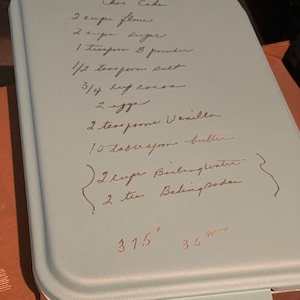 Choc Cake
2 cups flour
2 cups sugar
1 teaspoon B powder
1/2 teaspoon salt
3/4 cup cocoa
2 eggs
2 teaspoons Vanilla
10 tablespoon butter
2 cups Boiling water
2 tea Baking Soda
375° 35 min